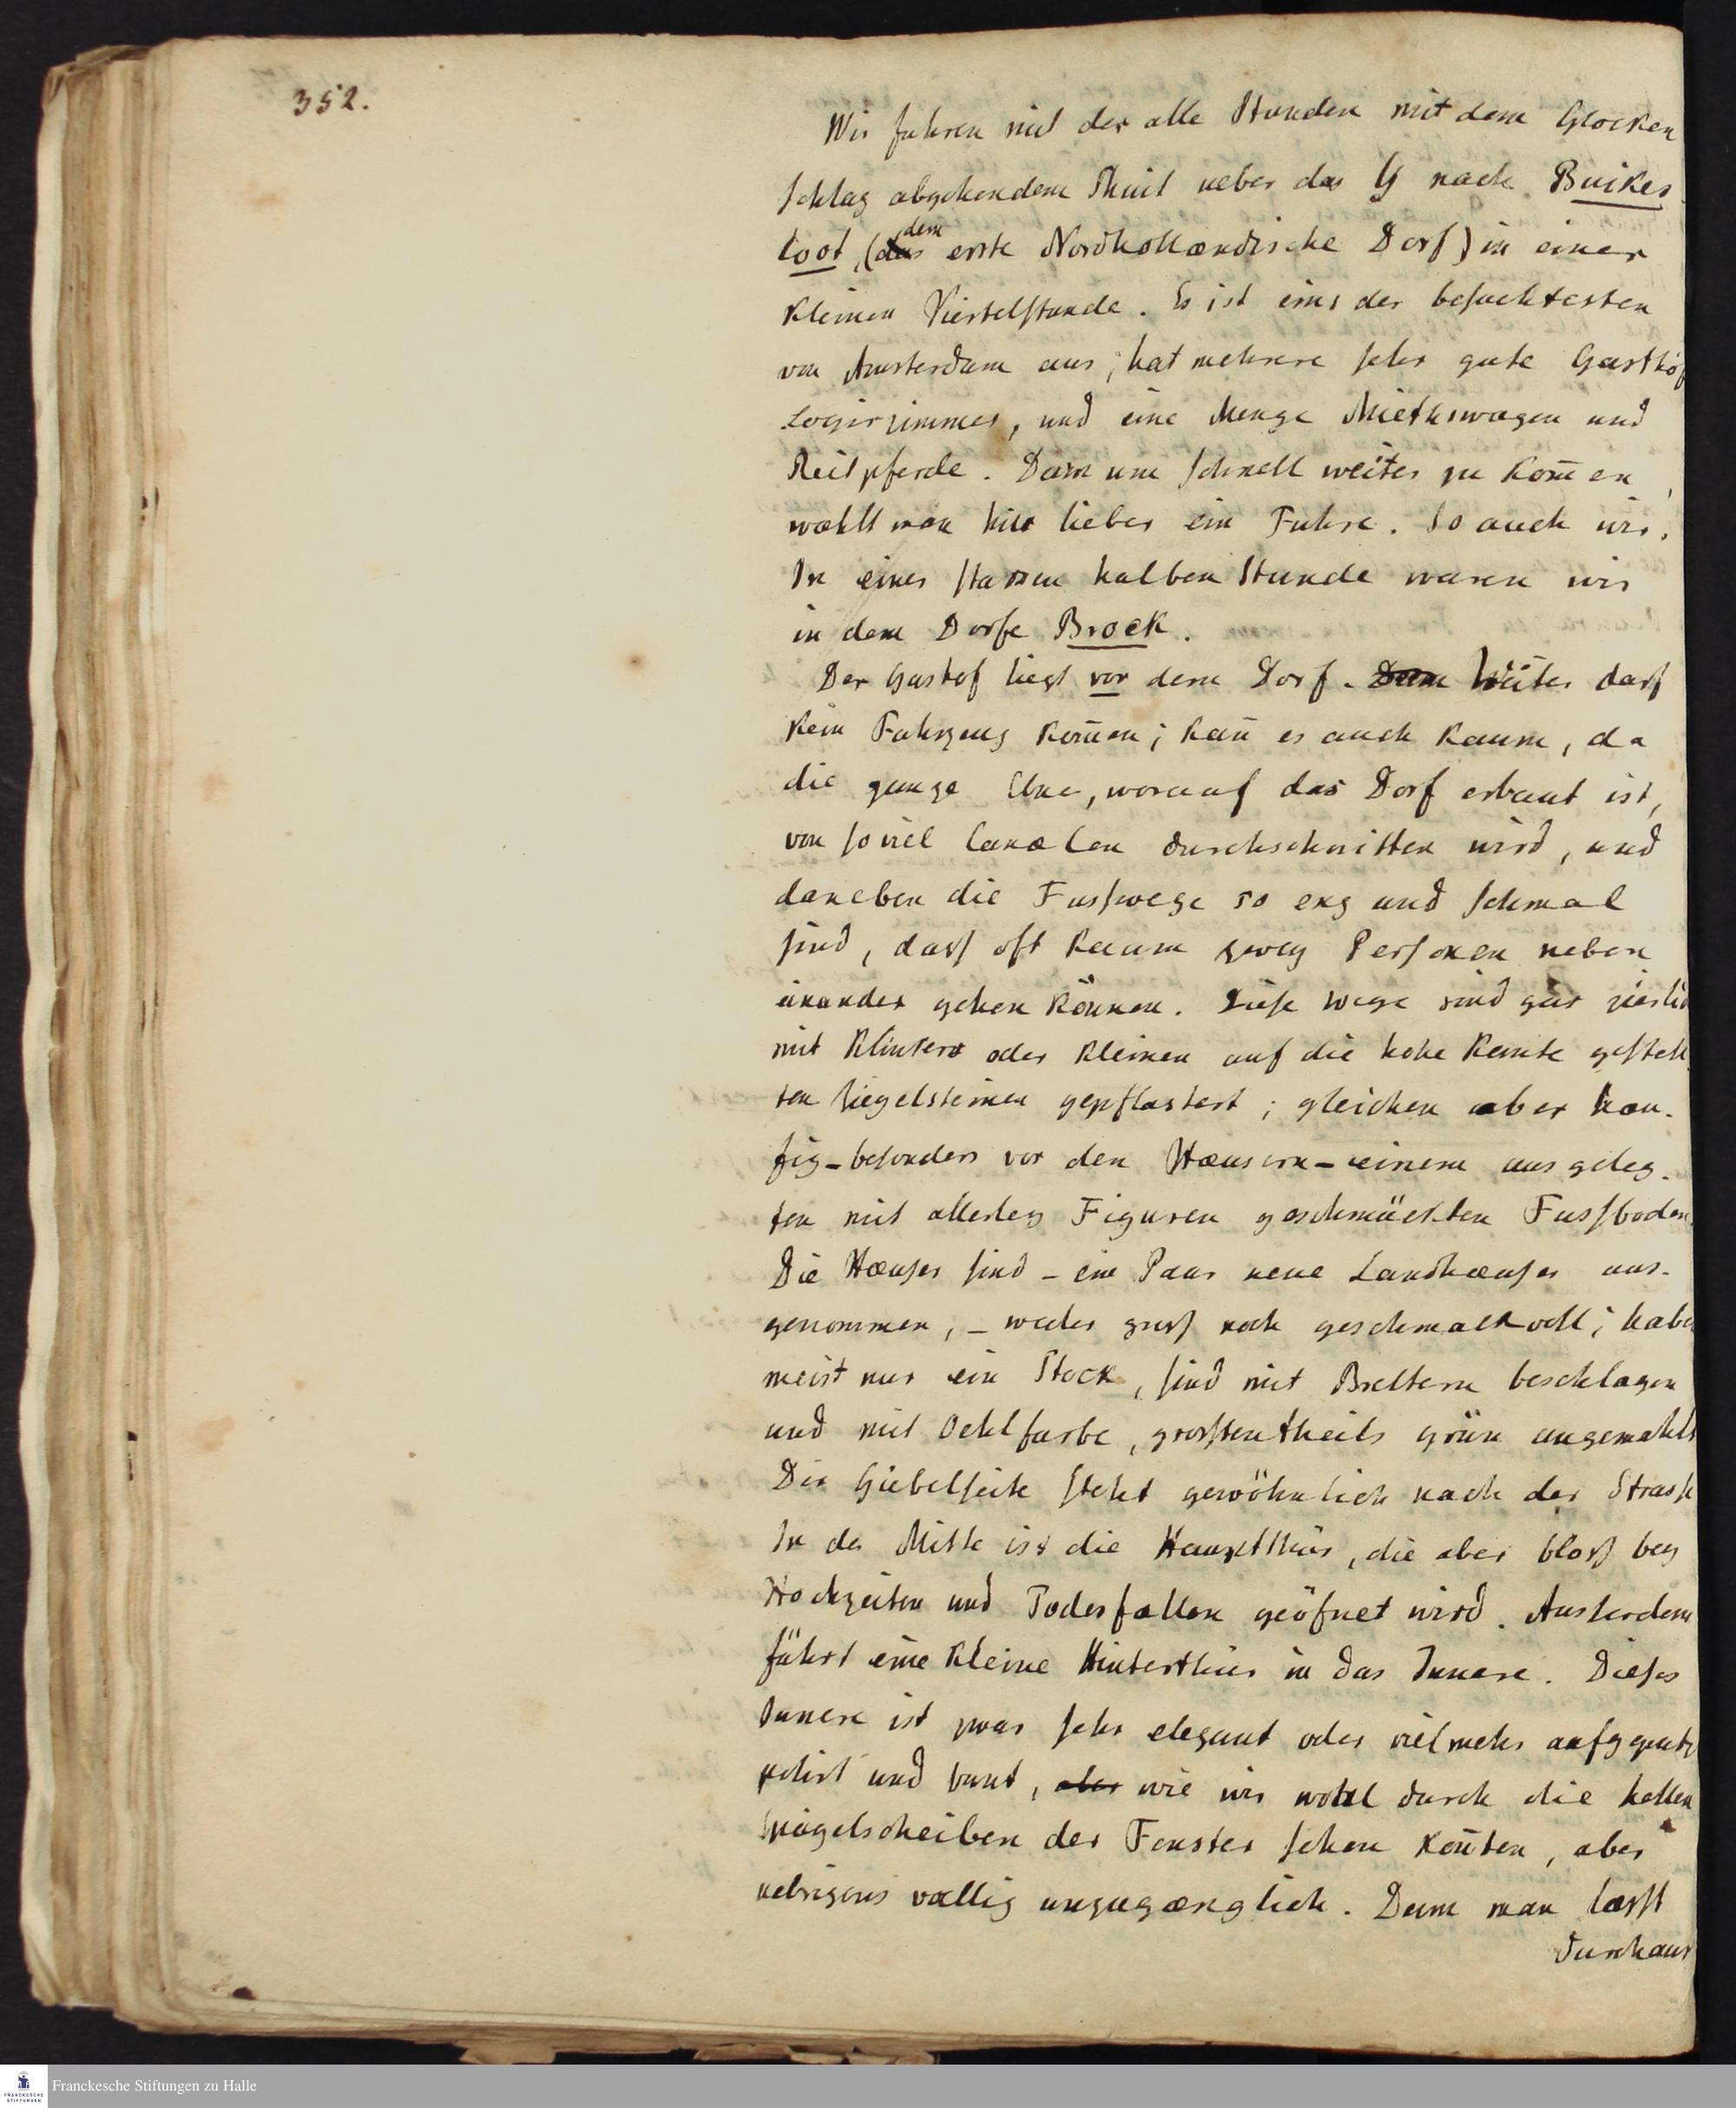 352.
Wir fuhren mit der alle Stunden mit dem Glocken
schlag abgehendem Thuit ueber das Y nach Buikes
loot, (das dem erste Nordhollændische Dorf) in einer
kleinen Viertelstunde. Es ist eins der besuchtesten
von Amsterdam aus; hat mehrere sehr gute Gasthöf
Logirzimmer, und eine Menge Miethswagen und
Reitpferde. Dann um schnell weiter zu kom̄en,
wæhlt man hier lieber ein Fuhre. So auch wir.
In einer starken halben Stunde waren wir
in dem Dorfe Brock.
Der Gasthof liegt vor dem Dorf. Dem Weiter darf
kein Fahrzeug kom̄en; kan̄ es auch kaum, da
die ganze Ebne, worauf das Dorf erbaut ist,
von so viel Canælen durchschnitten wird, und
daneben die Fusswege so eng und schmal
sind, dass oft kaum zwey Personen neben
einander gehen können. Diese Wege sind gar zierlich
mit Klinkers oder kleinen auf die hohe Kante gestell
ten Ziegelsteinen gepflastert; gleichen aber hæu-
fig - besonders vor den Hæusern - einem ausgeleg-
ten mit allerley Figuren geschmückten Fussboden
Die Hæuser sind - ein Paar neue Landhæuser aus-
genommen, - weder gross noch geschmackvoll; haben
meist nur ein Stock, sind mit Brettern beschlagen
und mit Oehlfarbe, grosstentheils grün angemahlt
Die Giebelseite steht gewöhnlich nach der Strasse
In der Mitte ist die Hauptthür, die aber bloss bey
Hochzeiten und Todesfællen geöfnet wird. Ausserdem
führt eine kleine Hinterthür in das Innere. Dieses
Innere ist zwar sehr elegant oder vielmehr aufgeputz
polirt und bunt, aber wie wir wohl durch die hellen
Spiegelscheiben der Fenster sehen kon̄ten, aber
uebrigens vœllig unzugænglich. Denn man læsst
durchaus
Franckesche Stiftungen zu Halle
FRANCKESCHE
STIFTUNGEN